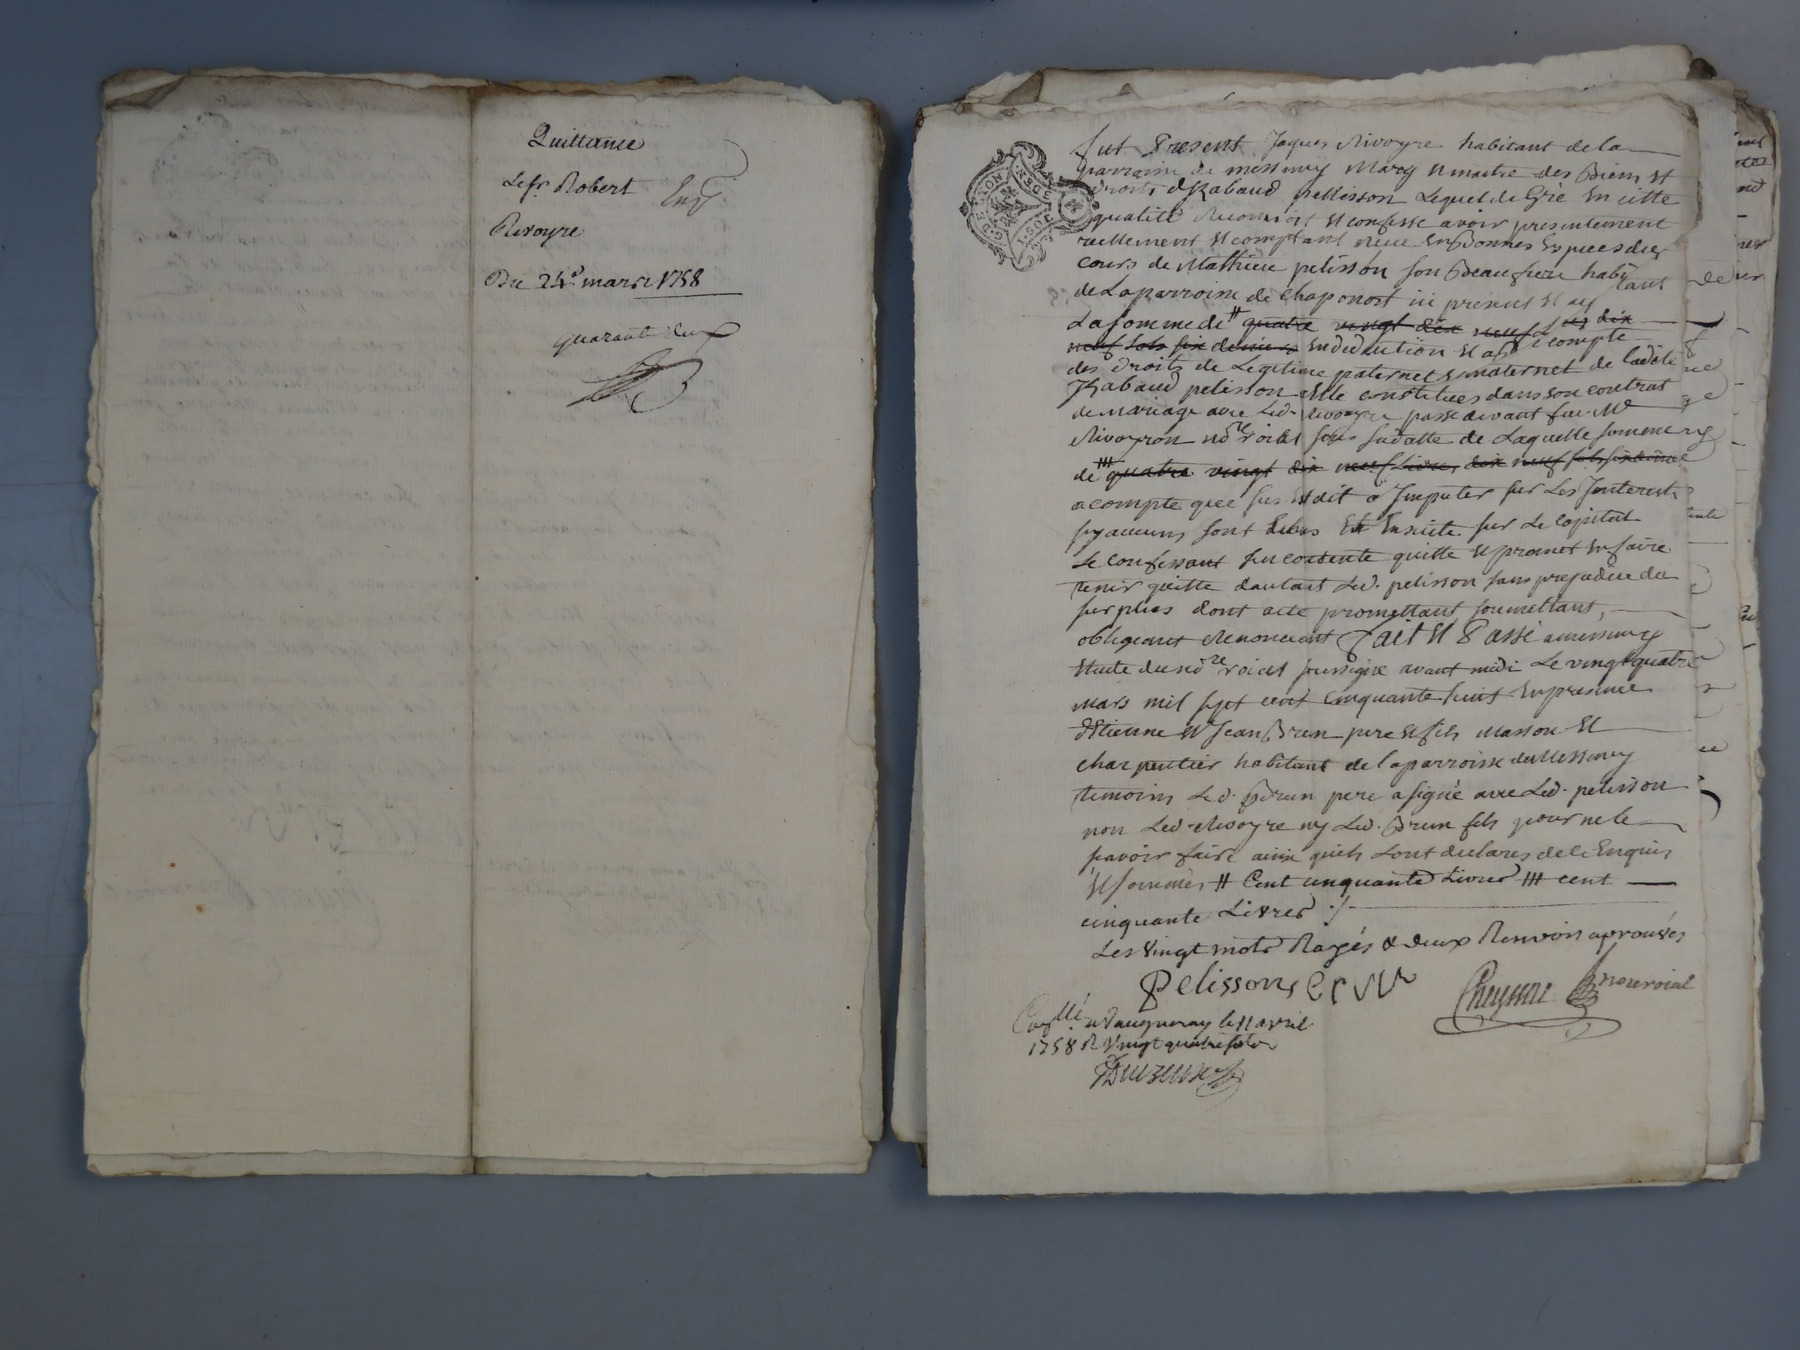 Quittance
Le sr. Robert
Rivoyre
Du 24e. mars 1758
quarante deux
fut Present Jaques Rivoyre habitant de la
parroisse de messimy Mary et maitre des Biens et
Droits d'Izabaud pellisson Lequel de Gré En cette
qualité Reconnoit et confesse avoir presentement
reellement et comptant Reçu En Bonnes Especes du
cours de Mathieu pelisson son Beaufrere habitant
de La parroisse de chaponost icy present et acc
La somme de # quatre vingt dix neuf L es dix
neuf sols six deniers En deduction et a compte
des Droits de Legitime paternel et maternel de ladite
Izabaud pelisson a Elle constituees dans son contrat
de mariage avec Led. Rivoyre passé devant feu Me
Rivoyron nore roial sous sa datte de Laquelle somme
de ### quatre vingt dix neuf Livres dix neuf sols six deniers
a compte que sus est dit a Imputer sur Les Interests
sy aucuns sont Deus Et Ensuite sur Le Capital
Le confessant s'en contente quitte et promet En faire
tenir quitte dautant Led. pelisson sans prejudice du
surplus dont acte promettant soumettant,
obligeant Renonceant fait et Passé a messimy
Etude du nore roial soussigné avant midi Le vingt quatre
mars mil sept cent cinquante huit En presence
d'Etienne et Jean Brun pere et fils Masson et
charpentier habitant de la parroisse de Messimy
temoins Led. Brun pere a signé avec Led. pelisson
non Led. Rivoyre ny Led. Brun fils pour ne le
savoir faire ainsi quils sont declares de ce Enquis
et sommés # Cent cinquante Livres ### cent
cinquante Livres ./.
Les vingt mots Rayés & deux Renvois aprouvés
Pelisson E Brun
nore roial
Conllé a Vaugneray le 11 avril
1758 R vingt quatre sols